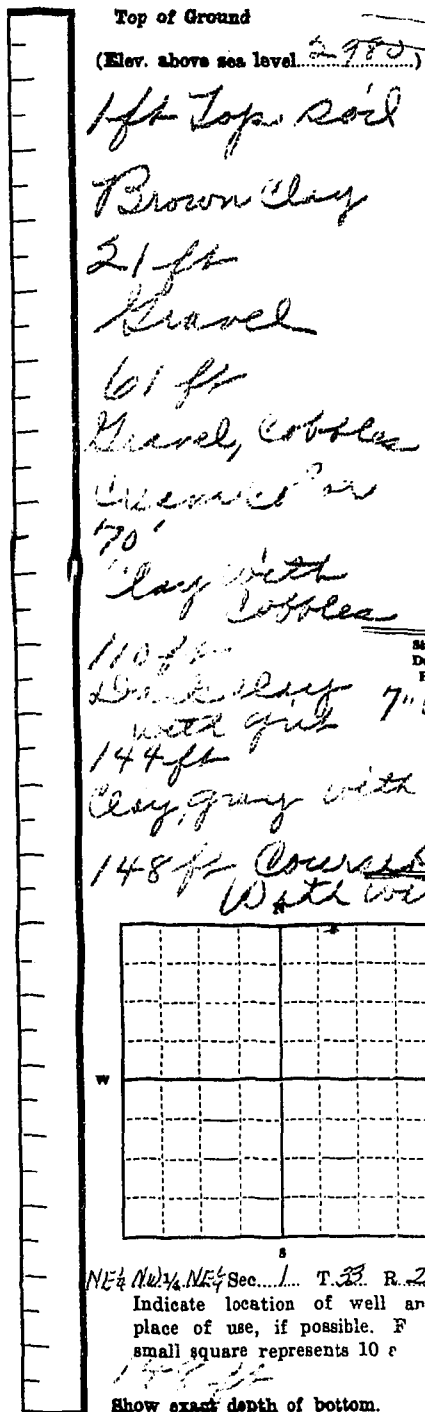 Top of Ground
(Elev. above sea level 2980)
1 ft Top soil
Brown Clay
21 ft
Gravel
61 ft
Gravel, Cobbles
70'
Clay with
Cobbles
110 ft
Dark Clay
with grit
7"
144 ft
Clay, gray with
148 ft
With
N
W
S
NE¼ N.W.¼ NE¼ Sec. 1 T. 33 R. 2
Indicate location of well an
place of use, if possible.
small square represents 10
148 ft
Show exact depth of bottom.